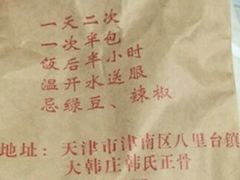 一天二次
一次半包
饭后半小时
温开水送服
忌绿豆、辣椒
地址：天津市津南区八里台镇
大韩庄韩氏正骨